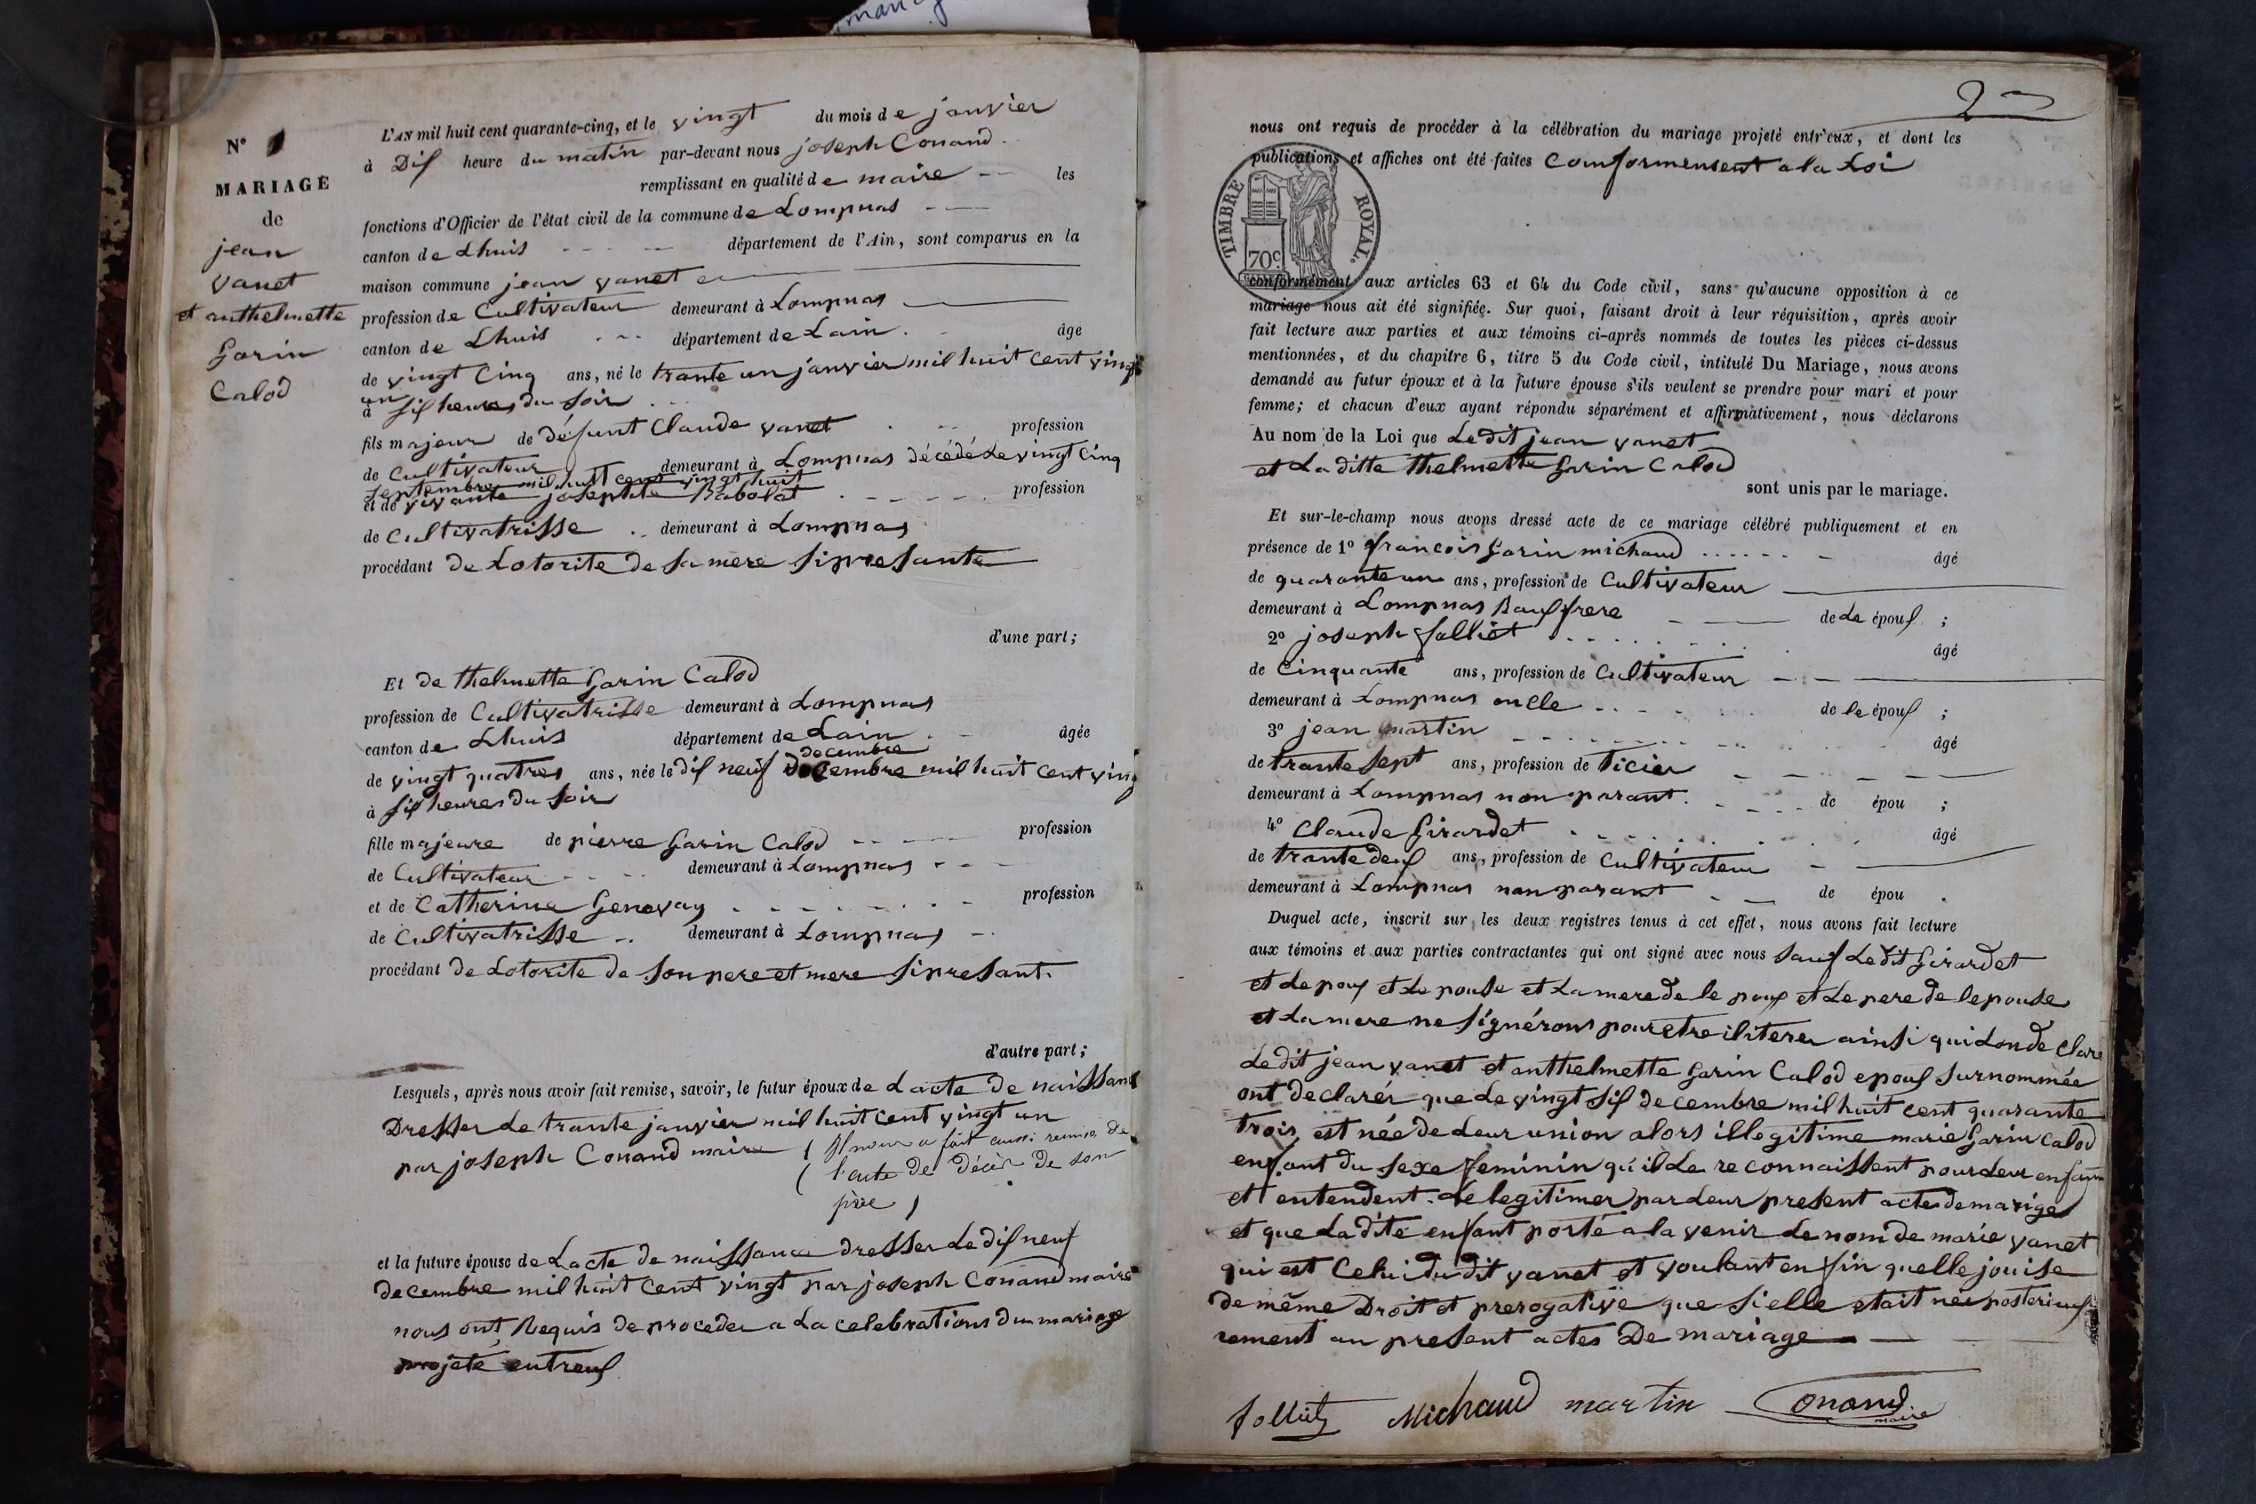 N° 1
MARIAGE
de
jean
vanet
et anthelmette
Garin
Calod
L'AN mil huit cent quarante-cinq, et le vingt du mois de janvier
à Dis heure du matin par-devant nous joseph Conand
remplissant en qualité de maire les
fonctions d'Officier de l'état civil de la commune de Lompnas
canton de Lhuis département de l'Ain, sont comparus en la
maison commune jean vanet
profession de Cultivateur demeurant à Lompnas
canton de Lhuis département de Lain. âge
de vingt Cinq ans, né le trante un janvier mil huit cent vingt
un
à sis heures du soir
fils majeur de défunt Claude vanet profession
de Cultivateur demeurant à Lompnas décédé Le vingt Cinq
septembre mil huit cent vingt huit
et de vivante josephte Rabolat profession
de Cultivatrisse demeurant à Lompnas
procédant de Lotorite de sa mere si presante
d'une part;
Et de thelmette Garin Calod
profession de Cultivatrisse demeurant à Lompnas
canton de Lhuis département de Lain âgée
decembre
de vingt quatres ans, née le dis neuf decembre mil huit cent ving
à sis heures du soir
fille majeure de pierre Garin Calod profession
de Cultivateur demeurant à Lompnas
et de Catherine Genevay profession
de Cultivatrisse demeurant à Lompnas
procédant de Lotorite de son pere et mere si presant
d'autre part;
Lesquels, après nous avoir fait remise, savoir, le futur époux de Lacte de naissan
Dresser Le trante janvier mil huit cent vingt un
par joseph Conand maire ( Il nous a fait aussi remise de
( l'acte de décès de son
père )
et la future épouse de Lacte de naissance dresser Le dis neuf
decembre mil huit cent vingt par joseph Conand maire
nous ont Requis de proceder a La celebrations du mariage
projeté entreus
2
nous ont requis de procéder à la célébration du mariage projeté entr'eux, et dont les
publications et affiches ont été faites Comformement a la Loi
TIMBRE ROYAL.
70c
conformément aux articles 63 et 64 du Code civil, sans qu'aucune opposition à ce
mariage nous ait été signifiée. Sur quoi, faisant droit à leur réquisition, après avoir
fait lecture aux parties et aux témoins ci-après nommés de toutes les pièces ci-dessus
mentionnées, et du chapitre 6, titre 5 du Code civil, intitulé Du Mariage, nous avons
demandé au futur époux et à la future épouse s'ils veulent se prendre pour mari et pour
femme; et chacun d'eux ayant répondu séparément et affirmativement, nous déclarons
Au nom de la Loi que Le dit jean vanet
et La ditte thelmette Garin Calod
sont unis par le mariage.
Et sur-le-champ nous avons dressé acte de ce mariage célébré publiquement et en
présence de 1° francois Garin michaud âgé
de quarante un ans, profession de Cultivateur
demeurant à Lompnas Bausfrere de Le épous ;
2° joseph folliet âgé
de Cinquante ans, profession de Cultivateur
demeurant à Lompnas oncle de le épous ;
3° jean martin âgé
de trante sept ans, profession de ticier
demeurant à Lompnas non parant de épou ;
4° Claude Girardet âgé
de trante deus ans, profession de Cultivateur
demeurant à Lompnas non parant de épou .
Duquel acte, inscrit sur les deux registres tenus à cet effet, nous avons fait lecture
aux témoins et aux parties contractantes qui ont signé avec nous sauf Le dit Girardet
et Le pous et Le pouse et La mere de le pous et Le pere de lepouse
et La mere ne signérons pour etre iliterer ainsi qui Lon de Clare
Le dit jean vanet et anthelmette Garin Calod epous surnommée
ont declarér que Le vingt sis decembre mil huit cent quarante
trois est née de Leur union alors illegitime marie Garin Calod
enfant du sexe feminin qu'il Le reconnaissent pour Leur enfan
et entendent Le legitimer par Leur present actes de marige
et que La dite enfant porté a la venir Le nom de marie vanet
qui est Celui du dit vanet et voulant en fin quelle jouise
de même Droit et prerogative que si elle etait née posterieus
rement au present actes De mariage
folliet Michaud martin Conand
maire